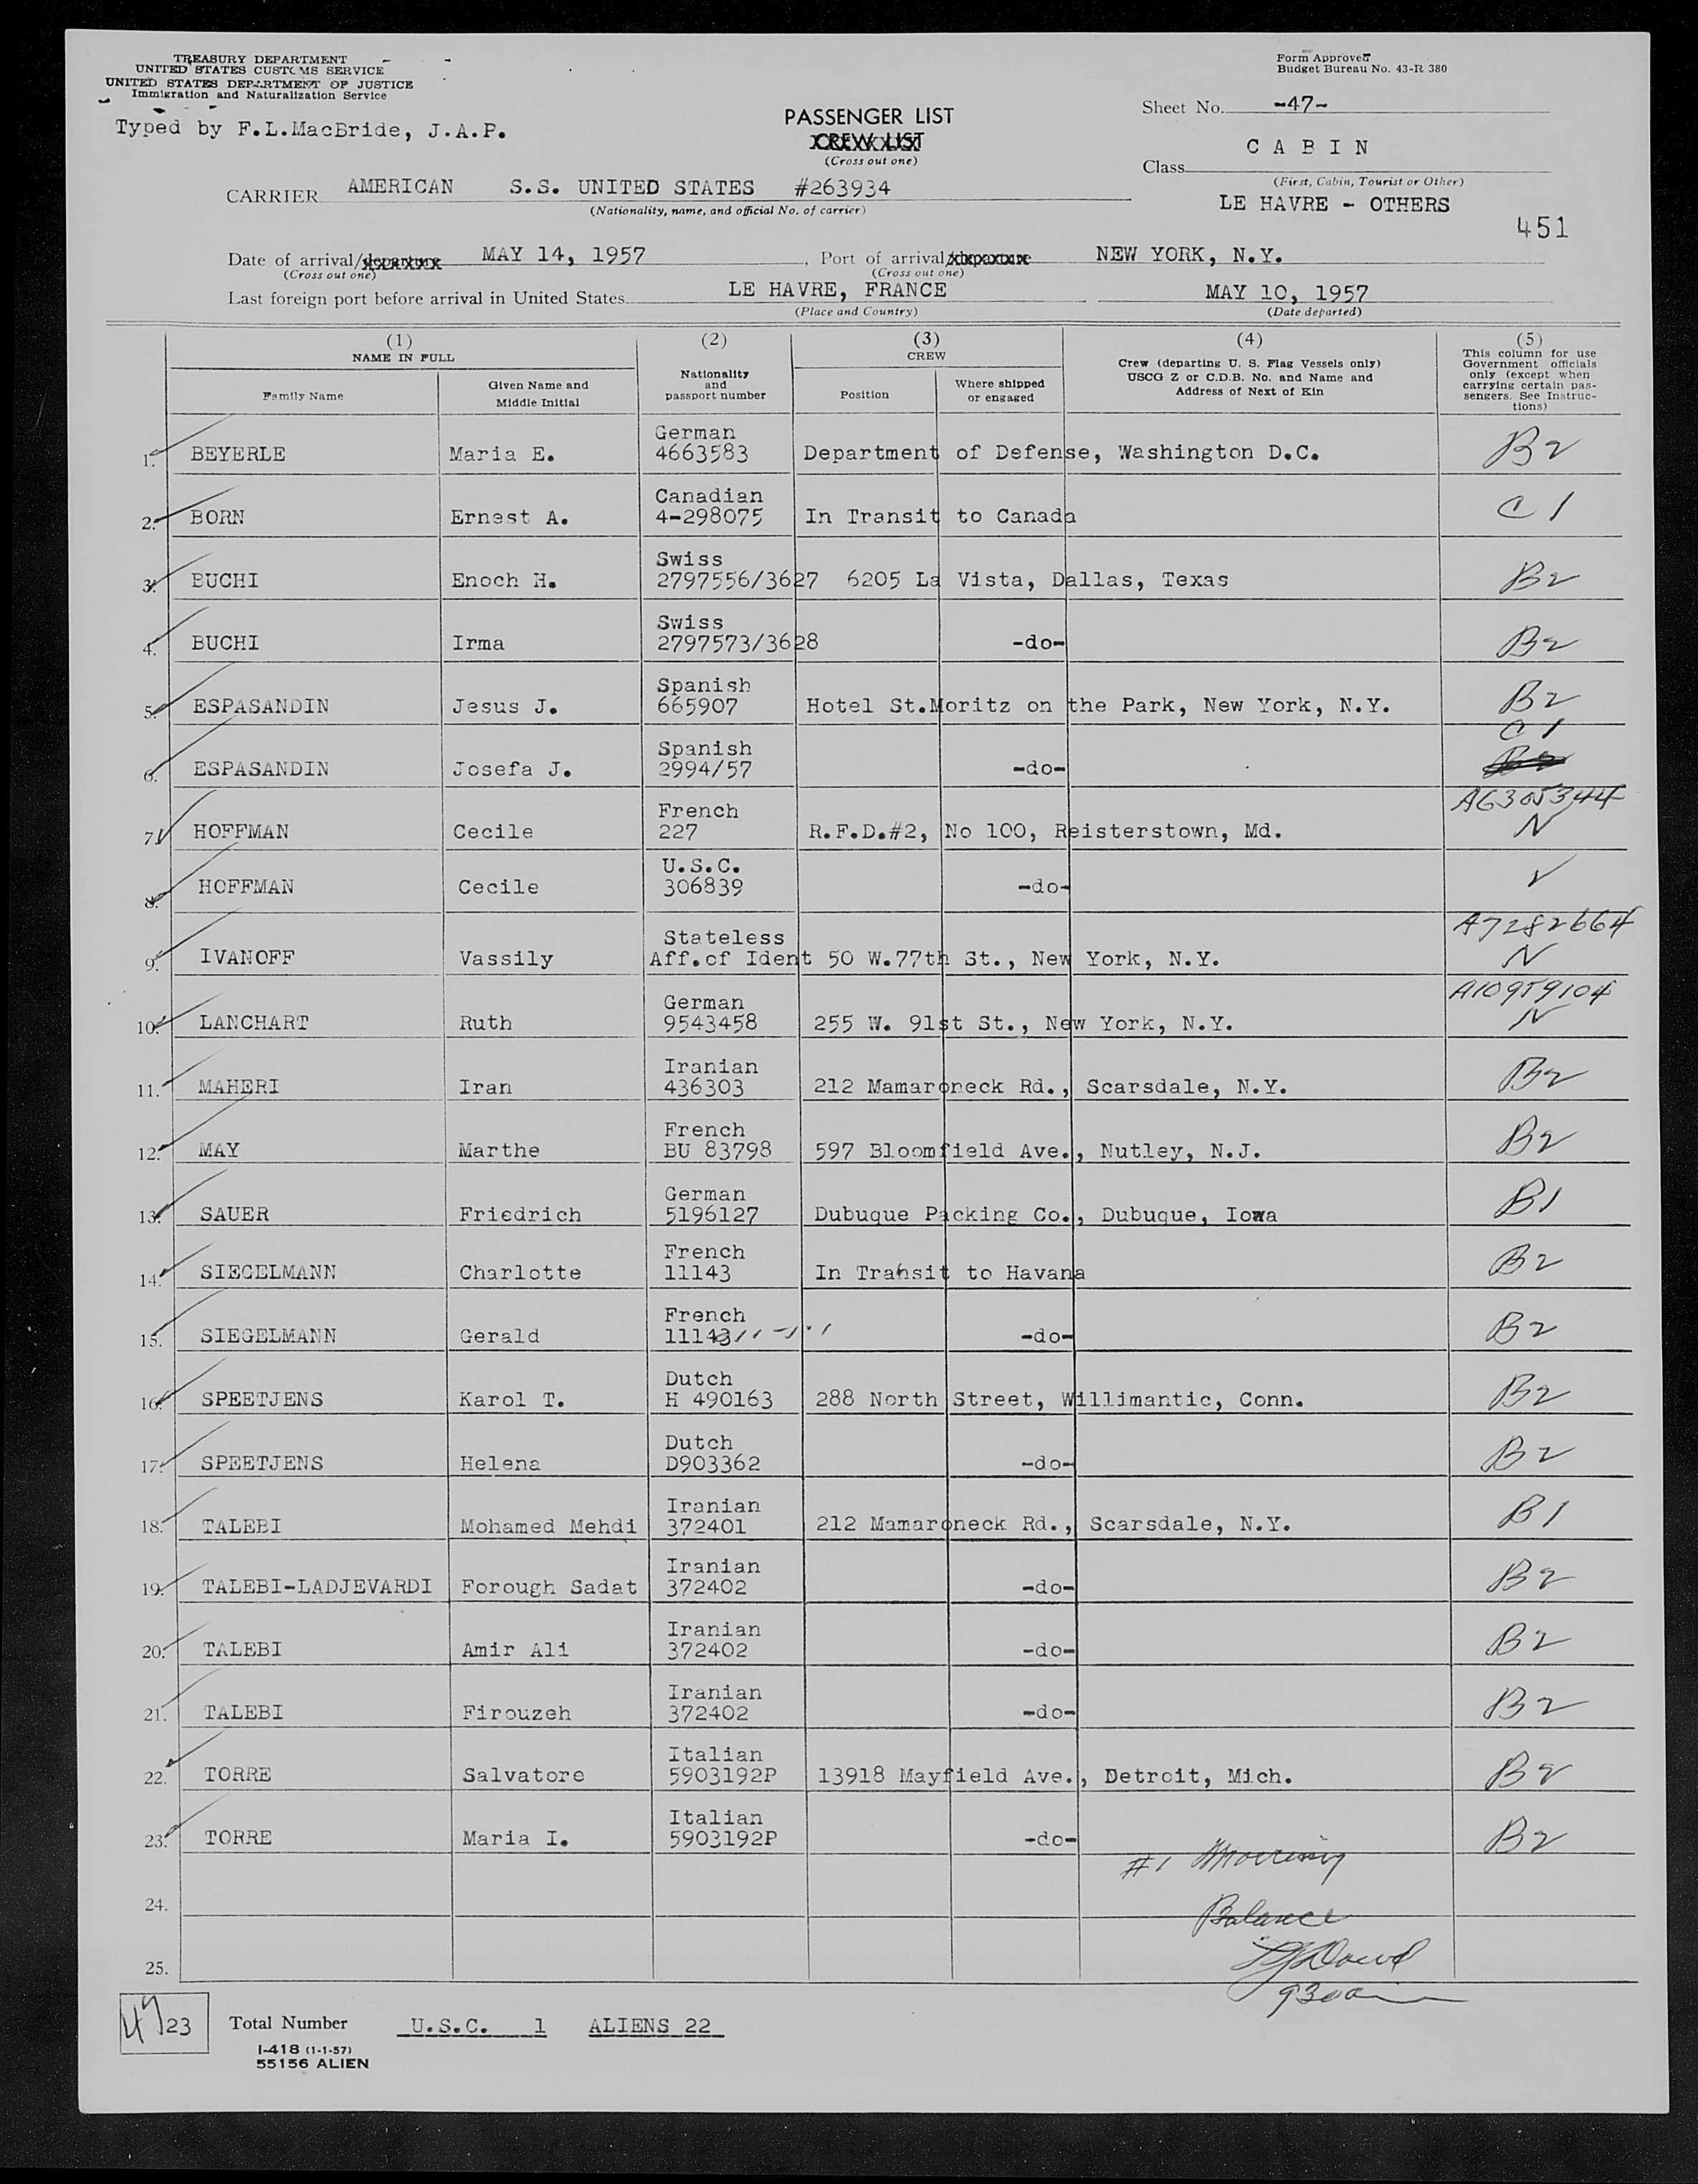 TREASURY DEPARTMENT
UNITED STATES CUSTOMS SERVICE
UNITED STATES DEPARTMENT OF JUSTICE
Immigration and Naturalization Service
Typed by F.L.MacBride, J.A.P.
Form Approved
Budget Bureau No. 43-R 380
PASSENGER LIST
CREW LIST
(Cross out one)
Sheet No. -47-
Class C A B I N
(First, Cabin, Tourist or Other)
LE HAVRE - OTHERS
451
CARRIER AMERICAN S.S. UNITED STATES #263934
(Nationality, name, and official No. of carrier)
Date of arrival/departure MAY 14, 1957, Port of arrival/departure NEW YORK, N.Y.
(Cross out one) (Cross out one)
Last foreign port before arrival in United States LE HAVRE, FRANCE MAY 10, 1957
(Place and Country) (Date departed)
(1) NAME IN FULL
Family Name
Given Name and Middle Initial
(2) Nationality and passport number
(3) CREW
Position
Where shipped or engaged
(4) Crew (departing U. S. Flag Vessels only) USCG Z or C.D.B. No. and Name and Address of Next of Kin
(5) This column for use Government officials only (except when carrying certain passengers. See Instructions)
1. BEYERLE Maria E. German 4663583 Department of Defense, Washington D.C. B2
2. BORN Ernest A. Canadian 4-298075 In Transit to Canada C1
3. BUCHI Enoch H. Swiss 2797556/3627 6205 La Vista, Dallas, Texas B2
4. BUCHI Irma Swiss 2797573/3628 -do- B2
5. ESPASANDIN Jesus J. Spanish 665907 Hotel St.Moritz on the Park, New York, N.Y. B2
6. ESPASANDIN Josefa J. Spanish 2994/57 -do- C1 B2
7. HOFFMAN Cecile French 227 R.F.D.#2, No 100, Reisterstown, Md. A6305344 N
8. HOFFMAN Cecile U.S.C. 306839 -do- ✓
9. IVANOFF Vassily Stateless Aff.of Ident 50 W.77th St., New York, N.Y. A7282664 N
10. LANCHART Ruth German 9543458 255 W. 91st St., New York, N.Y. A10959104 N
11. MAHERI Iran Iranian 436303 212 Mamaroneck Rd., Scarsdale, N.Y. B2
12. MAY Marthe French BU 83798 597 Bloomfield Ave., Nutley, N.J. B2
13. SAUER Friedrich German 5196127 Dubuque Packing Co., Dubuque, Iowa B1
14. SIEGELMANN Charlotte French 11143 In Transit to Havana B2
15. SIEGELMANN Gerald French 11143 -do- B2
16. SPEETJENS Karol T. Dutch H 490163 288 North Street, Willimantic, Conn. B2
17. SPEETJENS Helena Dutch D903362 -do- B2
18. TALEBI Mohamed Mehdi Iranian 372401 212 Mamaroneck Rd., Scarsdale, N.Y. B1
19. TALEBI-LADJEVARDI Forough Sadat Iranian 372402 -do- B2
20. TALEBI Amir Ali Iranian 372402 -do- B2
21. TALEBI Firouzeh Iranian 372402 -do- B2
22. TORRE Salvatore Italian 5903192P 13918 Mayfield Ave., Detroit, Mich. B2
23. TORRE Maria I. Italian 5903192P -do- B2
#1
24. Balance
25.
930am
23 Total Number U.S.C. 1 ALIENS 22
I-418 (1-1-57)
55156 ALIEN